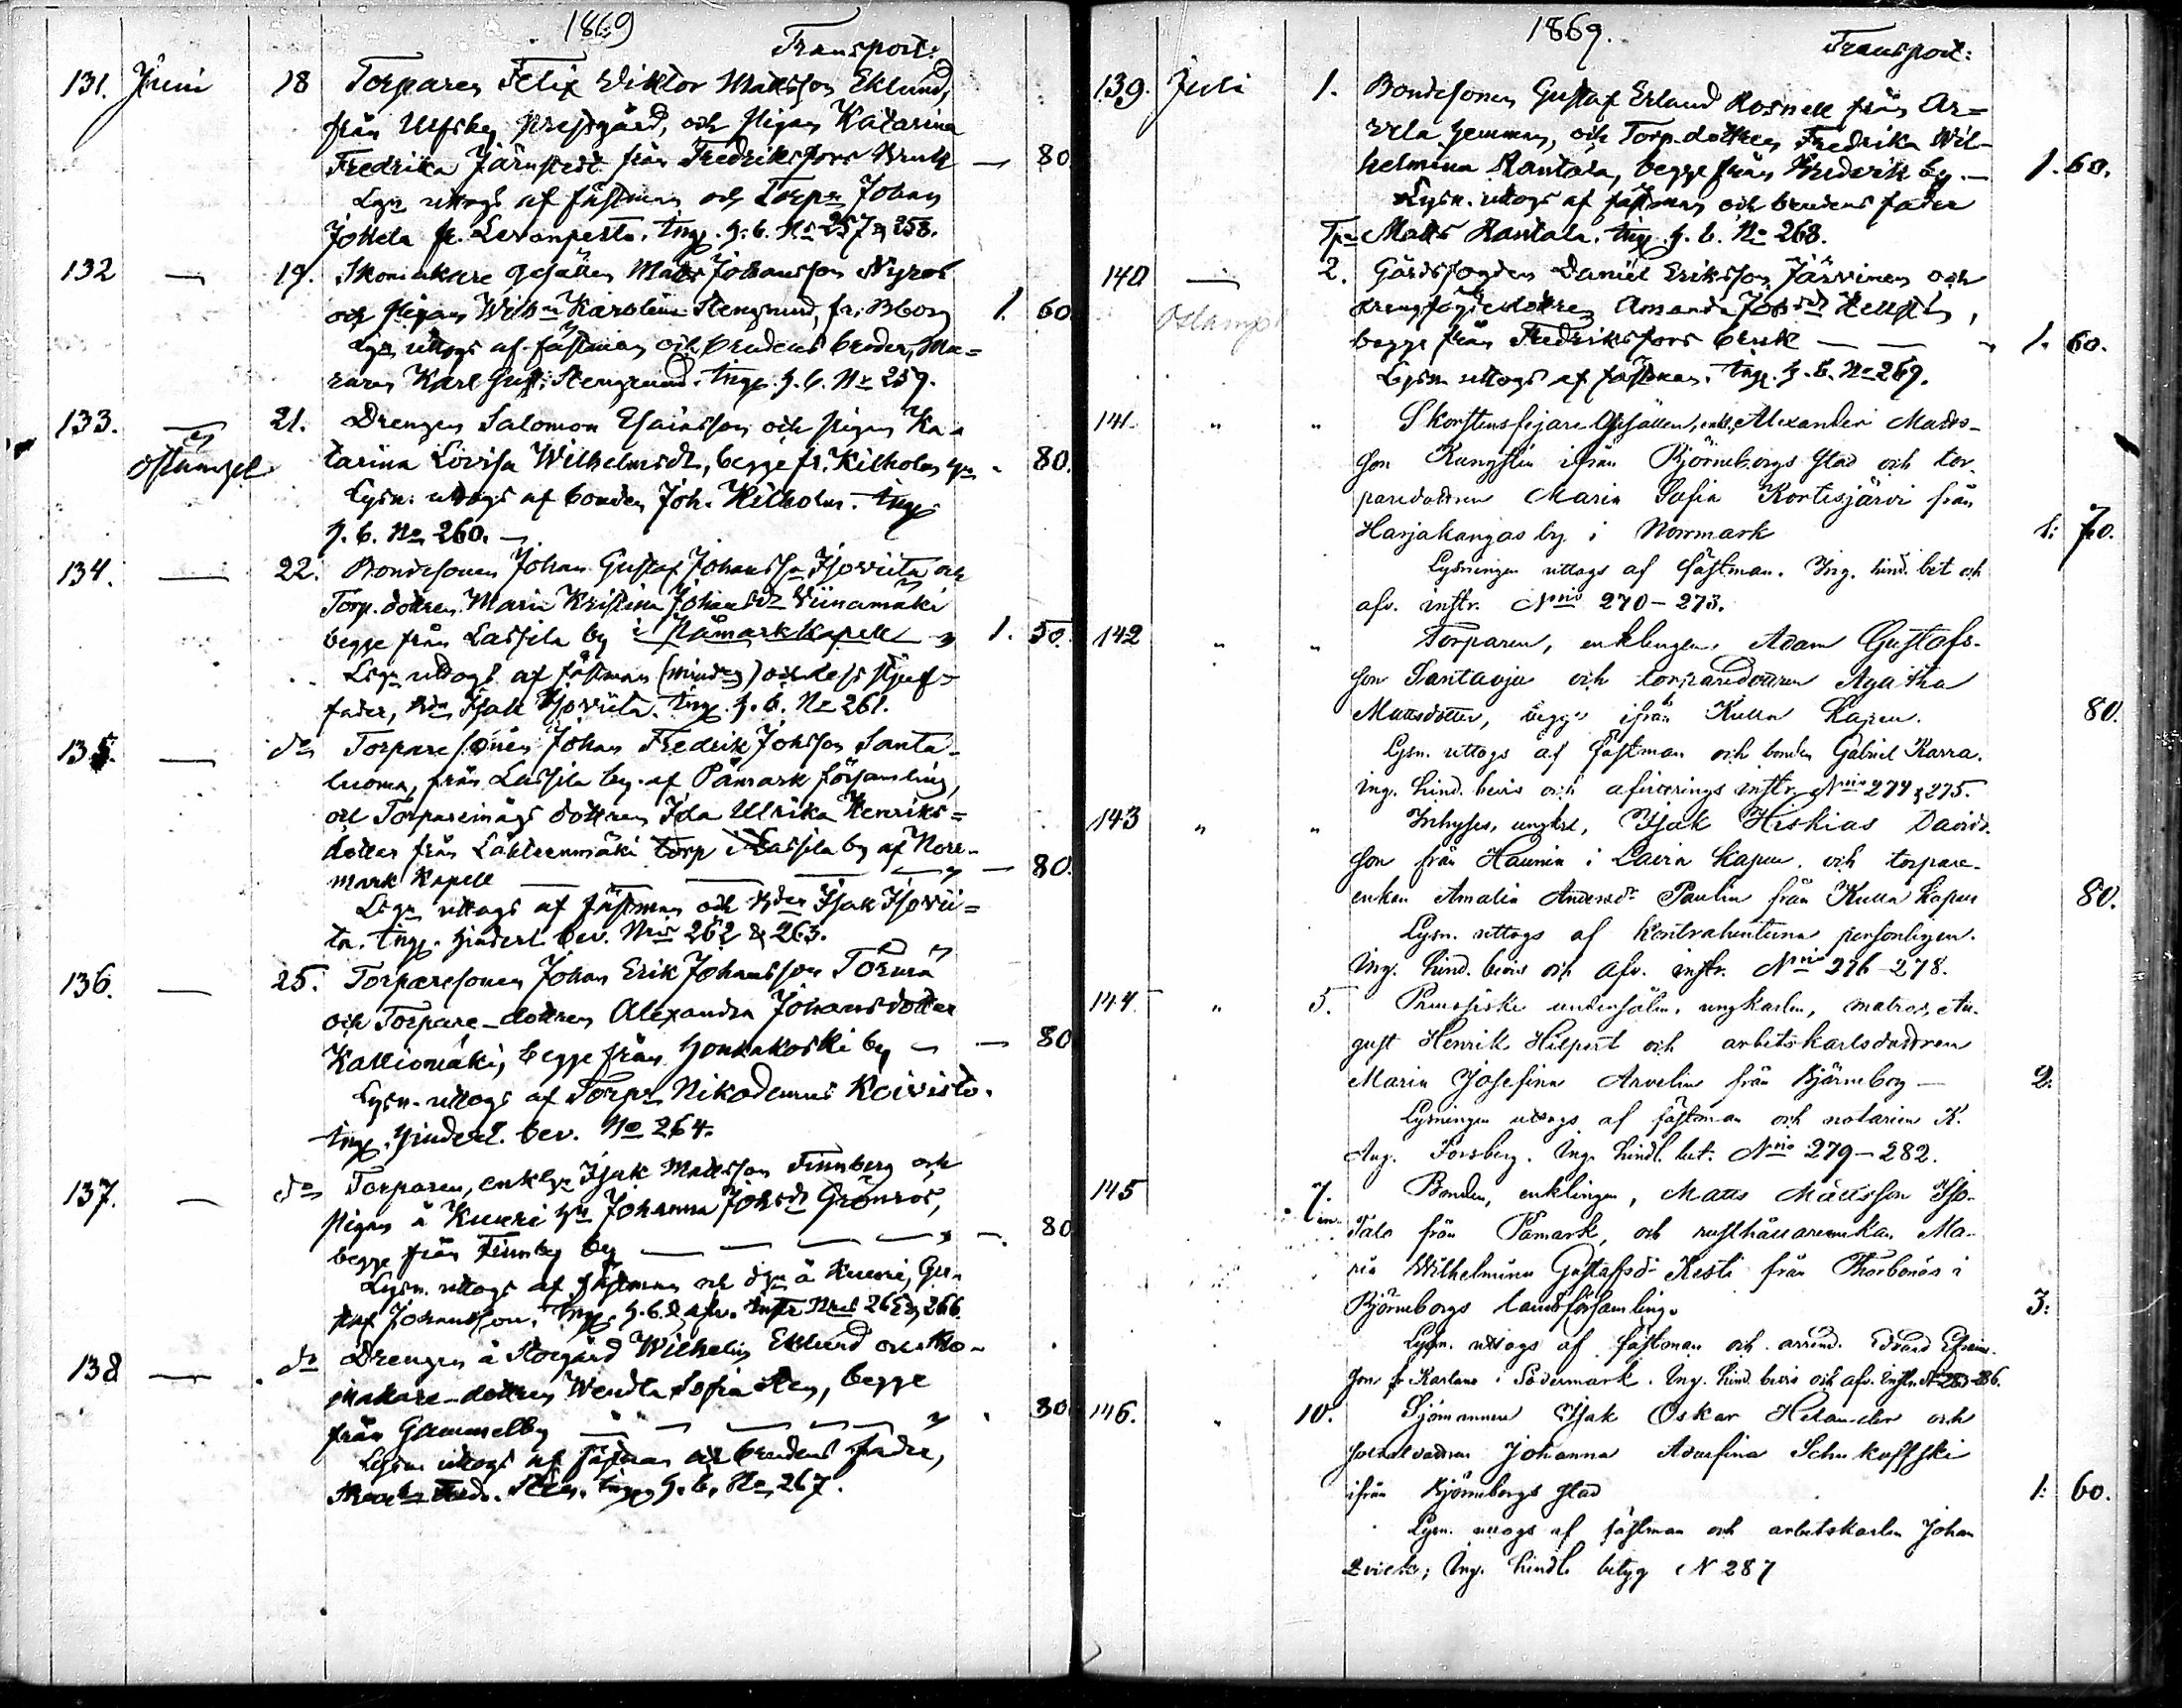 1869
Transport:
131. Juni 18 Torparen Felix Wiktor Mattsson Eklund,
från Ulfsby prestgård, och pigan Katarina
Fredrika Järnstedt från Fredriksfors bruk — 80
Lysn uttogs af fästman och Torpn Johan
Jokela fr. Levanpelto. Ing. h. b. No 257 & 258.
132 — 19. Skomakare gesällen Matts Johansson Nyroos
och pigan Wilhna Karolina Stengrund, fr. Bborg 1. 60
Lysn uttogs af fästman och brudens broder, Mu=
raren Karl Gust. Stengrund. Ing. h. b. No 259.
133. — 21. Drengen Salomon Esaiasson och pigan Ka-
ostämpl tarina Lovisa Wilhelmsdr, begge fr. Kilholm 80.
Lysn. uttogs af bonden Joh. Kilholm. Ing.
h. b. No 260. —
134. — 22. Bondesonen Johan Gustaf Johansson Isoviita och
Torp. dottren Maria Kristina Johansdr Viinamäki
begge från Lassila by i Påmark Kapell 1. 50.
Lysn uttogs af fästman (mindrg) och dess stjuf-
fader, Isak Isoviita. Ing. h. b. No 261.
135. — do Torparesonen Johan Fredrik Johsson Santa-
luoma, från Lassila by af Påmark församling,
och Torparemågs dottren Ida Ulrika Henriks=
dotter från Lähteenmäki torp i Lassila by af Norr-
mark Kapell — — — — 80.
Lysn uttogs af fästman och Isak Isovii=
ta. Ing. hinderl. bev. Nris 262 & 263.
136. — 25. Torparesonen Johan Erik Johansson Törmä
och Torpare-dottren Alexandra Johansdotter
Kalliomäki, begge från Honkakoski by — — 80
Lysn. uttogs af Torpn Nikodemus Koivisto.
Ing. hinderl. bev. No 264.
137. — do Torparen, enklgn Isak Mattsson Finnberg och
pigan å Kuuri Johanna Johsdr Grönroos,
begge från Finnby by — — — — 80
Lysn. uttogs af fästman och å Kuuri, Gu-
staf Johansson. Ing. h. b. & afv. instr. Nris 265 & 266.
138 — do Drengen å Storgård Wilhelm Eklund och Sko-
makare-dottren Wendla Sofia Sten, begge
från Gammelby — — — — 80
Lysn uttogs af fästman och brudens fader,
Skomakn Fred. Sten. Ing. h. b. No 267.
1869.
Transport:
139. Juli 1. Bondesonen Gustaf Erland Rosnell från Ar=
vela hemman, och Torp. dottren Fredrika Wil-
helmina Rantala, begge från by. — 1. 60.
Lysn. uttogs af fästman och brudens fader
Tpn Matts Rantala. Ing. h. b. No 268.
140 — 2. Gårdsfogden Daniel Eriksson Järvinen och
ostämpl drengfogdedottren Amanda Johsdr Hellsten,
begge från Fredriksfors bruk — — 1. 60.
Lysn. uttogs af fästman. Ing. h. b. No 269.
141. " " Skorstensfejare Gesällen, enkl., Alexander Matts-
son Kungstén ifrån Björneborgs stad och tor-
paredottren Maria Sofia Kortesjärvi från
Harjakangas by i Norrmark 1: 70.
Lysningen uttogs af fästman. Ing. hind. bet och
afv. instr. Nris 270 - 273.
142 " " Torparen, enklingen, Adam Gustafs-
son Santaoja och torparedottren Agatha
Mattsdotter, begge ifrån Kulla Kapell. 80.
Lysn. uttogs af fästman och bonden Gabriel Karra.
Ing. hind. bevis och afvittrings instr. Nris 274 & 275.
143 " " Inhyses, ungkrl, Isak Heskias Davids-
son från Haunia i Lavia Kapell och torpare-
enkan Amalia Andersdr Paulin från Kulla Kapell 80.
Lysn. uttogs af kontrahenterna personligen.
Ing. hind. bevis och afv. instr. Nris 276 - 278.
144 " 5. Preussiske undersåten, ungkarlen, matros, Au-
gust Henrik Hilpert och arbetskarlsdottren
Maria Josefina Arvelin från Björneborg — 2.
Lysningen uttogs af fästman och notarien K.
Aug. Forsberg. Ing. hindl. bet. Nris 279 - 282.
145 7. Bonden, enklingen, Matts Mattsson Iso-
Talo från Påmark, och rusthållareenkan Ma-
ria Wilhelmina Gustafsdr Kesti från Thorbonäs i
Björneborgs landsförsamling. 3:
Lysn. uttogs af fästman och arrend. Edvard Efraims-
son fr Karlano i Södermark. Ing. hind. bevis och afv. instr. No 283-286.
146. " 10. Sjömannen Isak Oskar Helander och
soldatdottren Johanna Adolfina Schukoffski
ifrån Björneborgs stad 1: 60.
Lysn. uttogs af fästman och arbetskarlen Johan
Ing. hindl. betyg N 287